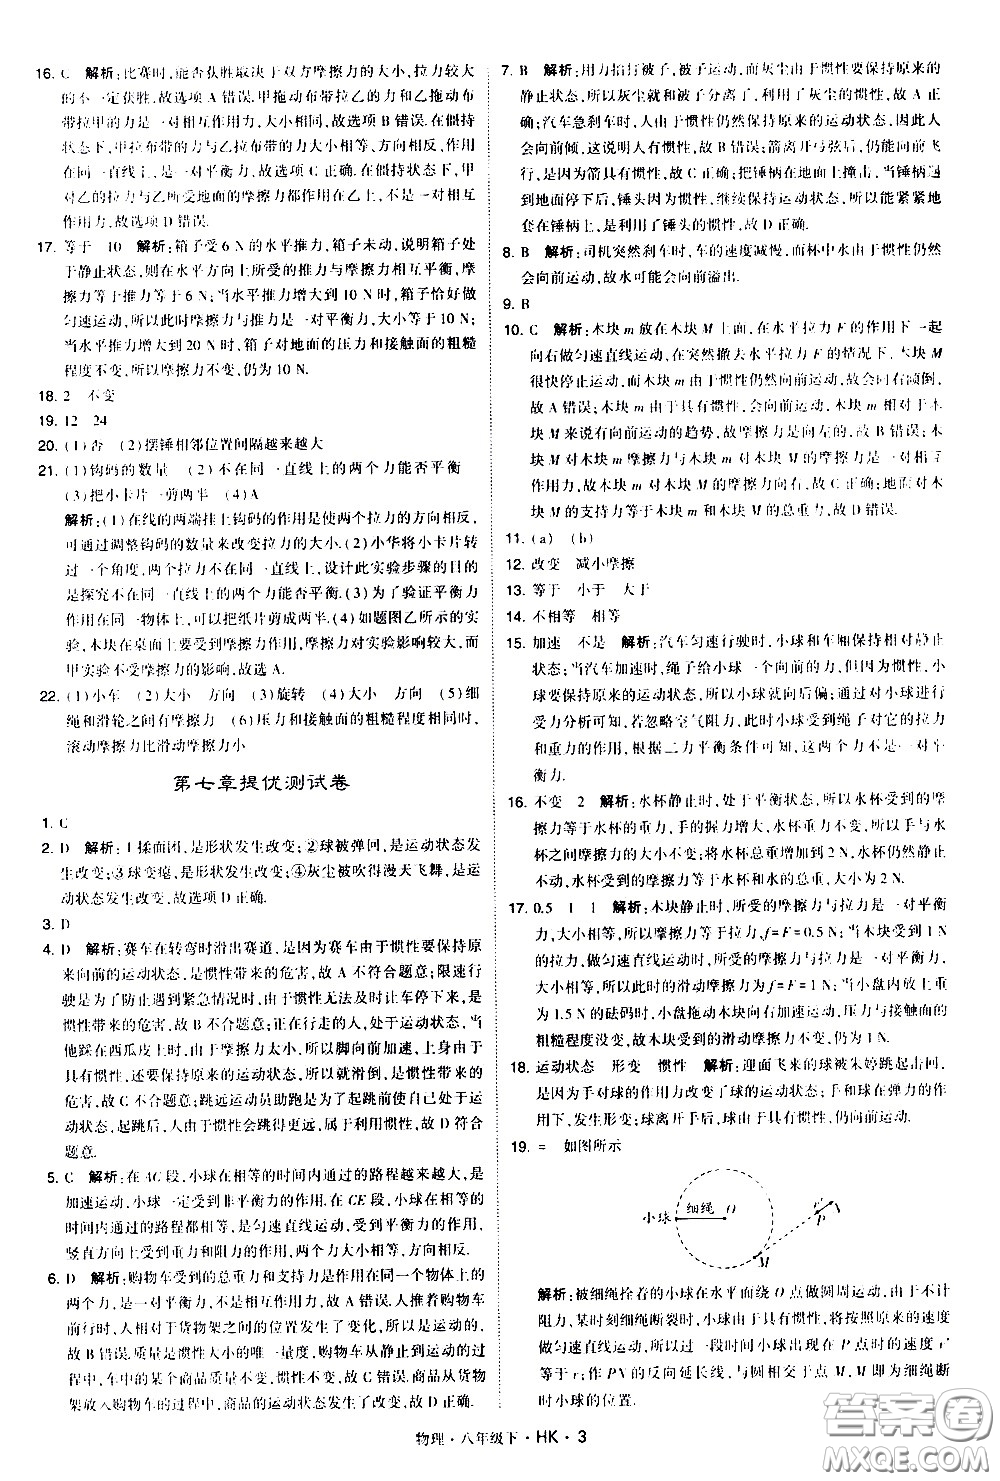 16. C　解析:比赛时,能否获胜取决于双方摩擦力的大小,拉力较大
的不一定获胜,故选项 A 错误.甲拖动布带拉乙的力与乙拖动布
带拉甲的力是一对相互作用力,大小相等,故选项 B 错误.在僵持
状态下,甲拉布带的力与乙拉布带的力大小相等,方向相反,作
用在同一直线上,是一对平衡力,故选项 C 正确.在僵持状态下,甲
对乙的拉力与乙所受地面的摩擦力都作用在乙上,不是一对相互
作用力,故选项 D 错误.
17. 等于　10　解析:箱子受 6 N 的水平推力,箱子未动,说明箱子处
于静止状态,则在水平方向上所受的推力与摩擦力相平衡,即摩
擦力也等于 6 N;当水平推力增大到 10 N 时,箱子恰好做
匀速运动,所以此时摩擦力与推力是一对平衡力,大小等于 10 N;
当水平推力增大到 20 N 时,箱子对地面的压力和接触面的粗糙
程度不变,所以箱子所受的摩擦力不变,仍为 10 N.
18. 2　不变
19. 12　24
20. (1)否　(2)摆锤相邻位置间隔越来越大
21. (1)钩码的数量　(2)不在同一直线上的两个力能否平衡
(3)把小卡片一剪两半　(4)A
解析:(1)在线的两端挂上钩码的作用是使两个拉力的方向相反,
可通过调整钩码的数量来改变拉力的大小.(2)小华将小卡片转
过一个角度,两个拉力不在同一直线上,设计此实验步骤的目的
是探究不在同一直线上的两个力能否平衡.(3)为了验证平衡力
作用在同一物体上,可以把纸片剪成两半.(4)如题图乙所示的实
验,木块在桌面上要受到摩擦力作用,摩擦力对实验影响较大,而
甲实验不受摩擦力的影响,故选 A.
22. (1)小车　(2)大小　方向　(3)旋转　(4)大小　方向　(5)细
绳和滑轮之间有摩擦力　(6)压力和接触面的粗糙程度相同时,
滚动摩擦力比滑动摩擦力小
第七章提优测试卷
1. C
2. D　解析:①揉面团,是形状发生改变;②球被弹回,是运动状态发
生改变;③球变瘪,是形状发生改变;④灰尘被吹得漫天飞舞,是运
动状态发生改变,故选项 D 正确.
3. D
4. D　解析:赛车在转弯时滑出赛道,是因为赛车由于惯性要保持原
来向前的运动状态,是惯性带来的危害,故 A 不符合题意;限速行
驶是为了防止遇到紧急情况时,由于惯性无法及时让车停下来,是
惯性带来的危害,故 B 不合题意;正在行走的人,由于惯性,当
他踩在西瓜皮上时,因摩擦力减小,所以脚向前加速,上身由于惯
性,还要保持原来的运动状态,所以容易滑倒,这是惯性带来的危
害,故 C 不合题意;跳远运动员的助跑是为了起跳前让人处于运
动状态,起跳后,人由于惯性会继续向前运动,属于利用惯性,故 D 符合
题意.
5. C　解析:在 AC 段,小球在相等的时间内通过的路程越来越大,是
加速运动,小球一定受到非平衡力的作用.在 CE 段,小球在相等的
时间内通过的路程都相等,是匀速直线运动,受到平衡力的作用,
竖直方向上受到重力和阻力的作用,此时两力大小相同,方向相反.
6. D　解析:购物车受到的总重力和支持力是作用在同一个物体上的
两个力,是一对平衡力的作用,故 A 错误.推着购物车
前行时,人相对于货物架之间的位置发生了变化,所以是运动的,
故 B 错误.质量是惯性大小的唯一量度,购物车从静止到运动的过
程中,车中商品的质量没有改变,故惯性不变,故 C 错误.商品从货物
架放入购物车的过程中,商品的运动状态发生了改变,故 D 正确.
7. B　解析:用力拍打被子,被子运动,而灰尘由于惯性要保持原来的
静止状态,所以灰尘就和被子分离了,是利用了灰尘的惯性,故 A 正
确.汽车急刹车时,人由于惯性仍然保持原来的运动状态,所以会
向前倾,所以说有害,故 B 错误;箭离开弓弦后,仍能向前飞行,是
因为箭具有惯性,故 C 正确;把锤柄在地面上撞击,当锤柄
突然停下后,锤头由于惯性,继续保持运动状态,所以能紧紧地
套在锤柄上,是利用了锤头的惯性,故 D 正确.
8. B　解析:司机突然刹车时,车的速度减慢,而杯中水由于惯性仍然
会向前运动,故水可能会向前溢出.
9. B
10. C　解析:木块 m 放在木块 M 上面,在水平拉力 F 的作用下一起
向右做匀速直线运动,在突然撤去水平拉力 F 的情况下,木块 M
很快停止运动,而木块 m 由于惯性仍然向前运动,故会向右倾倒,
故 A 错误;若木块 m 由于具有惯性,要向前运动,木块 m 相对于木
块 M 有向右运动的趋势,故摩擦力是向左的,故 B 错误,
D 错误.
11. (a)　(b)
12. 改变　减小摩擦
13. 等于　小于　大于
14. 不相等　相等
15. 加速　不是　解析:汽车匀速行驶时,小球和车厢保持相对静止
状态;当汽车加速时,绳子给小球一个向前的拉力,由于惯性,小球
要保持原来的运动状态,所以向后偏;对此时的小球进行
受力分析可知,若忽略空气阻力,此时小球受到绳子对它的拉力
和重力的作用,根据二力平衡条件可知,拉力与重力不是一对平
衡力.
16. 不变　2　解析:水杯静止时,处于平衡状态,所以水杯受到的摩
擦力等于水杯的重力,手的握力增大,水杯重力不变,所以手与水
杯之间的摩擦力大小不变;水杯总重力增大 2 N,则水杯
所受到的摩擦力增大 2 N.
17. 0.5　1　1　解析:木块静止时,所受的摩擦力与拉力是一对平衡
力,所以摩擦力等于拉力,f=F=0.5 N;当木块受到 1 N
的拉力,做匀速直线运动,所受的摩擦力与拉力是一对平衡力,
所以此时的滑动摩擦力 f=F=1 N;当小盘内放重
为 1.5 N 的砝码时,小盘拖动木块向右加速运动,压力与接触面的
粗糙程度没有改变,故木块受到的滑动摩擦力不变,仍为 1 N.
18. 运动状态　形变　惯性　解析:迎面飞来的球被朱婷跳起击回,
是因为手对球的作用力改变了球的运动状态;手和球在弹力的作用
下,发生形变;球离开手后,球由于惯性,仍向前运动.
19. =　如图所示
小球　细绳　O　P　N　M
解析:被细绳拴着的小球在水平面绕 O 点做圆周运动,在不计
阻力的情况下,当某时刻细绳断裂时,小球由于惯性,将按照原来的速度
做匀速直线运动,所以过一段时间小球出现在 P 点时的速度 v′
等于 v;作 PN 的反向延长线,与圆相交于点 M,M 即细绳断
时小球的位置.
物理·八年级下·HK·3
答案卷